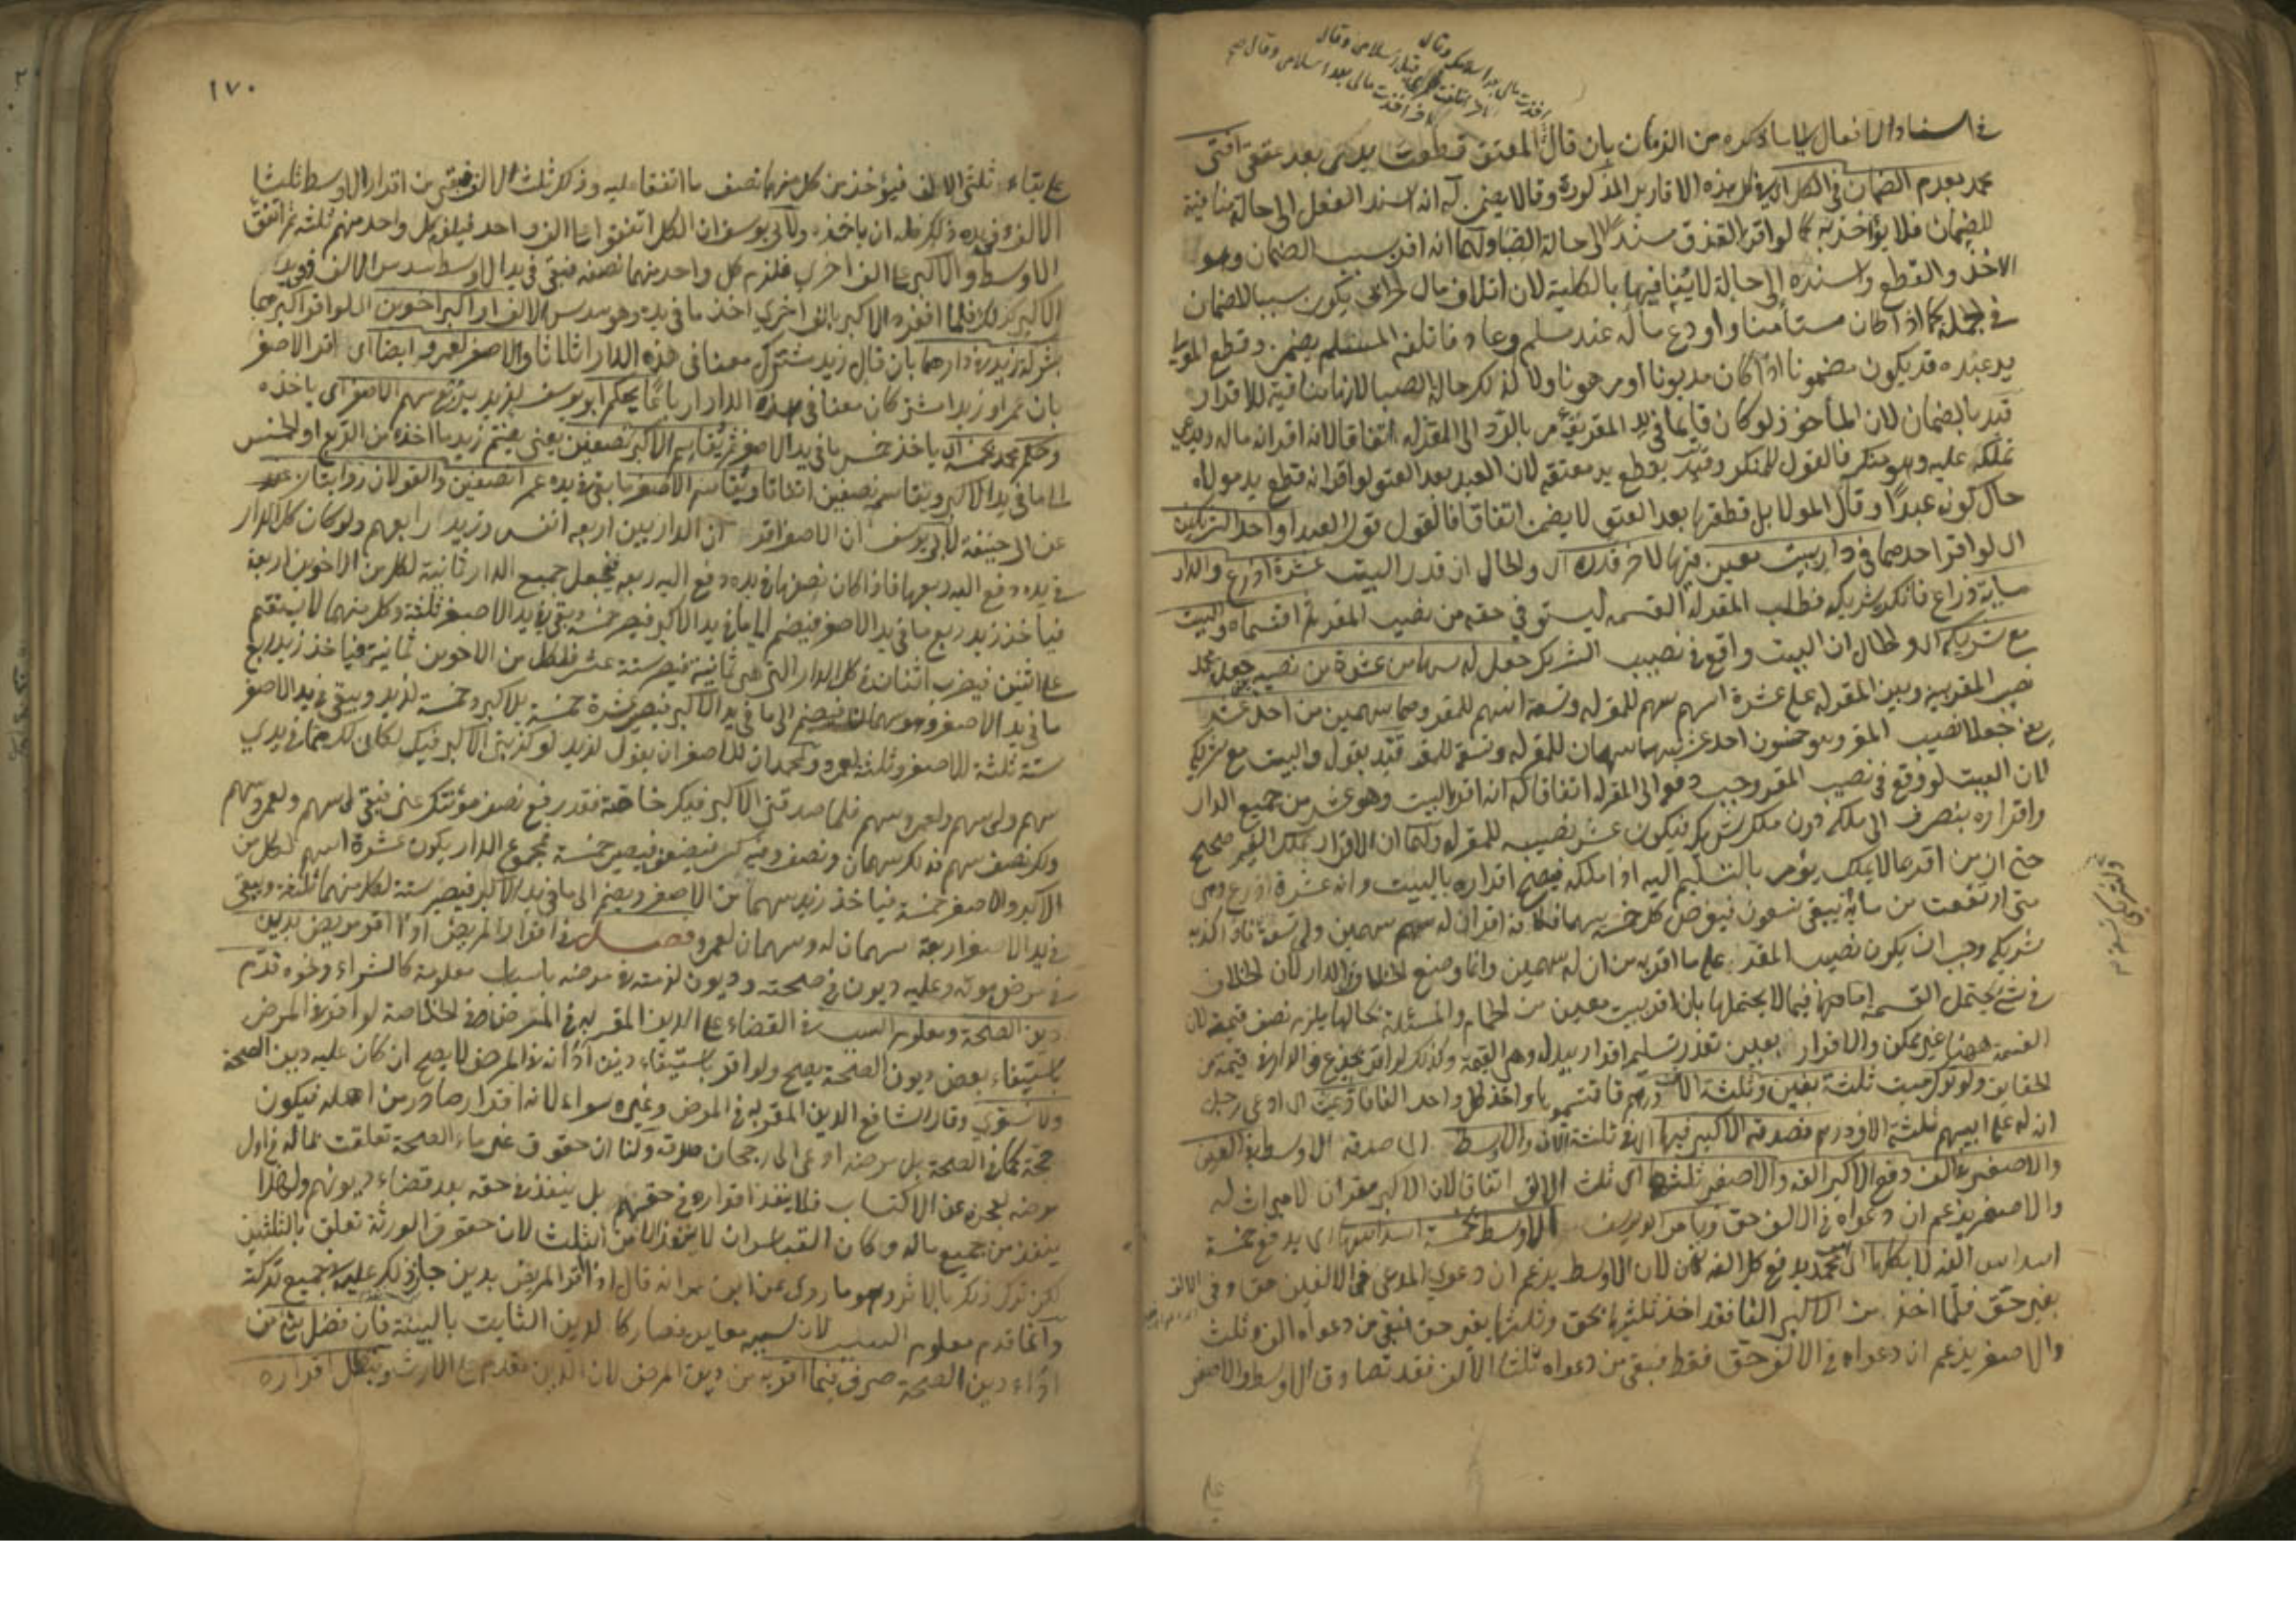 في اسناد الافعال لما ساء ذكره من الزمان بان قال المعتق قطعت يدك بعد عتقي افتى
محمد بعدم الضمان في الكل اي في كل هذه الاقارير المذكورة وقالا يضمن له انه اسند الفعل الى حالة منافية
للضمان فلا يؤاخذ به كما لو اقر القذف مسندا الى حالة الصبا ولهما انه اقر بسبب الضمان وهو
الاخذ والقطع واسنده الى حالة لا ينافيها بالكلية لان اتلاف مال الحربي يكون سببا للضمان
في الجملة كما اذا كان مستأمنا واودع ماله عند مسلم وعاد فاتلفه المسلم يضمن وقطع المولى
يد عبده قد يكون مضمونا اذا كان مديونا او مرهونا ولا كذلك حالة الصبا لانها منافية للاقرار
قيد بالضمان لان المأخوذ لو كان قايما في يد المقر يؤمر بالرد الى المقر له اتفاقا لانه اقر انه ماله ويدعي
تملكه عليه وهو منكر فالقول للمنكر وقيد بقطع يد معتقه لان العبد بعد العتق لو اقر انه قطع يد مولاه
حال كونه عبدا وقال المولا بل قطعتها بعد العتق لا يضمن اتفاقا فالقول قول العبد او احد الشريكين
اي لو اقر احدهما في دار ببيت معين فيها لاخر قدره اي والحال ان قدر البيت عشرة اذرع والدار
ماية ذراع فانكره شريكه فطلب المقر له القسمة ليستوفي حقه من نصيب المقر ثم اقتسماه والبيت
مع شريكه اي والحال ان البيت واقع في نصيب الشريك جعل له سهما من عشرة من نصيبه جعل محمد
نصيب المقر بينه وبين المقر له على عشرة اسهم سهم للمقر له وتسعة اسهم للمقر وهما سهمين من احد عشر
يعني جعلا نصيب المقر وهو خمسون احد عشر سهما سهمان للمقر له وتسعة للمقر قيد بقوله والبيت مع شريكه
لان البيت لو وقع في نصيب المقر وجب دفعه الى المقر له اتفاقا له انه اقر بالبيت وهو عشر من جميع الدار
واقراره ينصرف الى ملكه دون ملك شريكه فيكون عشر نصيبه للمقر له ولهما ان الاقرار بملك الغير صحيح
حتى ان من اقر بما لا يملك يؤمر بالتسليم اليه اذا ملكه فيصح اقراره بالبيت وانه عشرة اذرع ومتى
متى ارتفعت من ماية يبقى تسعون فيفرض كل خمسة سهما فكانه اقر ان له سهمين ولي تسعة فاذا كذبه
شريكه وجب ان يكون نصيب المقر على ما اقر به من ان له سهمين وانما وضع الخلاف في الدار لان الخلاف
في شئ يحتمل القسمة اما فيما لا يحتملها بان اقر ببيت معين من الحمام والمسئلة بحالها يلزمه نصف قيمته لان
القسمة ههنا غير ممكن والاقرار بعين تعذر تسليمه اقرار ببدله وهو القيمة وكذلك لو اقر بجذع في الدار لزمه قيمته من
الحقايق ولو ترك ميت ثلثة بنين وثلثة الاف درهم فاقتسموها واخذ كل واحد الفا فادعى اي ادعى رجل
ان له على ابيهم ثلثة الاف درهم فصدقه الاكبر فيها اي في ثلثة الاف والاوسط اي صدقه الاوسط في الفين
والاصغر في الف دفع الاكبر الفه والاصغر ثلثها اي ثلث الالف اتفاقا لان الاكبر مقر ان لا ميراث له
والاصغر يزعم ان دعواه في الالف حق ويأمر ابو يوسف الاوسط بخمسة اسداسها اي يدفع خمسة
اسداس الفه لا بكلها اي قال محمد يدفع كل الفه لان الاوسط يزعم ان دعوى المدعي في الالفين حق وفي الالف
بغير حق فلما اخذ من الاكبر الفا فقد اخذ ثلثيها بحق وثلثها بغير حق فبقي من دعواه الف وثلث
والاصغر يزعم ان دعواه في الالف حق فقط فبقي من دعواه ثلثا الالف فقد تصادق الاوسط والاصغر
١٧٠
على بقاء ثلثي الالف فيؤخذ من كل منهما نصف ما اتفقا عليه وذلك ثلث الالف فبقي من اقرار الاوسط ثلثا
الالف وفي يده ذلك فله ان ياخذه ولابي يوسف ان الكل اتفقوا على الف واحد فيلزم كل واحد منهم ثلثه ثم اتفق
الاوسط والاكبر على الف اخرى فلزم كل واحد منهما نصفه فبقي في يد الاوسط سدس الالف وفي يد
الاكبر كذلك فلما انفرد الاكبر بالف اخرى اخذ ما في يده وهو سدس الالف او اكبر اخوين اي لو اقر اكبرهما
بشركة زيد في دارهما بان قال زيد مشترك معنا في هذه الدار اثلاثا والاصغر لعمرو ايضا اي اقر الاصغر
بان عمرا وزيدا مشتركان معنا في هذه الدار ارباعا يحكم ابو يوسف لزيد بربع سهم الاصغر اي ياخذه
وحكم محمد بخمسه اي ياخذ خمس ما في يد الاصغر ثم يقاسم الاكبر نصفين يعني يضم زيد ما اخذه من الربع او الخمس
الى ما في يد الاكبر ويتقاسمه نصفين اتفاقا ويقاسم الاصغر ما بقي في يده عمرا نصفين والقولان روايتان
عن ابي حنيفة لابي يوسف ان الاصغر اقر ان الدار بين اربعة انفس وزيد رابعهم ولو كان كل الدار
في يده دفع اليه ربعها فاذا كان نصفها في يده دفع اليه ربعه فيجعل جميع الدار ثمانية لكل من الاخوين اربعة
فياخذ زيد ربع ما في يد الاصغر فيضم الى ما في يد الاكبر فيصير خمسة وبقي في يد الاصغر ثلثة وكل منهما لا يستقيم
على اثنين فيضرب اثنان في كل الدار التي هي ثمانية فيصير ستة عشر فلكل من الاخوين ثمانية فياخذ زيد ربع
ما في يد الاصغر وهو سهمان فيضم الى ما في يد الاكبر فيصير عشرة خمسة للاكبر وخمسة لزيد ويبقى في يد الاصغر
ستة ثلثة للاصغر وثلثة لعمرو ولمحمد ان للاصغر ان يقول لزيد لو كذبني الاكبر فيك لكان لك مما في يدي
سهم ولي سهم ولعمرو سهم فلما صدقني الاكبر فيك خاصة فقد رفع نصف مؤنتك عني فبقي لي سهم ولعمرو سهم
ولك نصف سهم فذلك سهمان ونصف وفيه كسر فيضعف فيصير خمسة فمجموع الدار يكون عشرة اسهم لكل من
الاكبر والاصغر خمسة فياخذ زيد سهما من الاصغر ويضم الى ما في يد الاكبر فيصير ستة لكل منهما ثلثة ويبقى
في يد الاصغر اربعة سهمان له وسهمان لعمرو فصل في اقرار المريض اذا اقر مريض بدين
في مرض موته وعليه ديون في صحته وديون لزمته في مرضه باسباب معلومة كالشراء ونحوه قدم
دين الصحة ومعلوم السبب في القضاء على الدين المقر به في المرض وفي الخلاصة لو اقر في المرض
باستيفاء بعض ديون الصحة يصح ولو اقر باستيفاء دين ادانه في المرض لا يصح ان كان عليه دين الصحة
ولا نسوي وقال الشافعي الدين المقر به في المرض وغيره سواء لانه اقرار صادر من اهله فيكون
حجة كما في الصحة بل مرضه ادعى الى رجحان صدقه ولنا ان حقوق غرماء الصحة تعلقت بماله في اول
مرضه لعجزه عن الاكتساب فلا ينفذ اقراره في حقهم بل ينفذ في حقه بعد قضاء ديونهم ولهذا
ينفذ من جميع ماله وكان القياس ان لا ينفذ الا من الثلث لان حقوق الورثة تعلق بالثلثين
لكن ترك ذلك بالاثر وهو ما روي عن ابن عمر انه قال اذا اقر المريض بدين جاز ذلك عليه في جميع تركته
وانما قدم معلوم السبب لان سببه معاين فصار كالدين الثابت بالبينة فان فضل شئ من
اداء دين الصحة صرف فيما اقر به من دين المرض لان الدين مقدم على الارث ويبطل اقراره